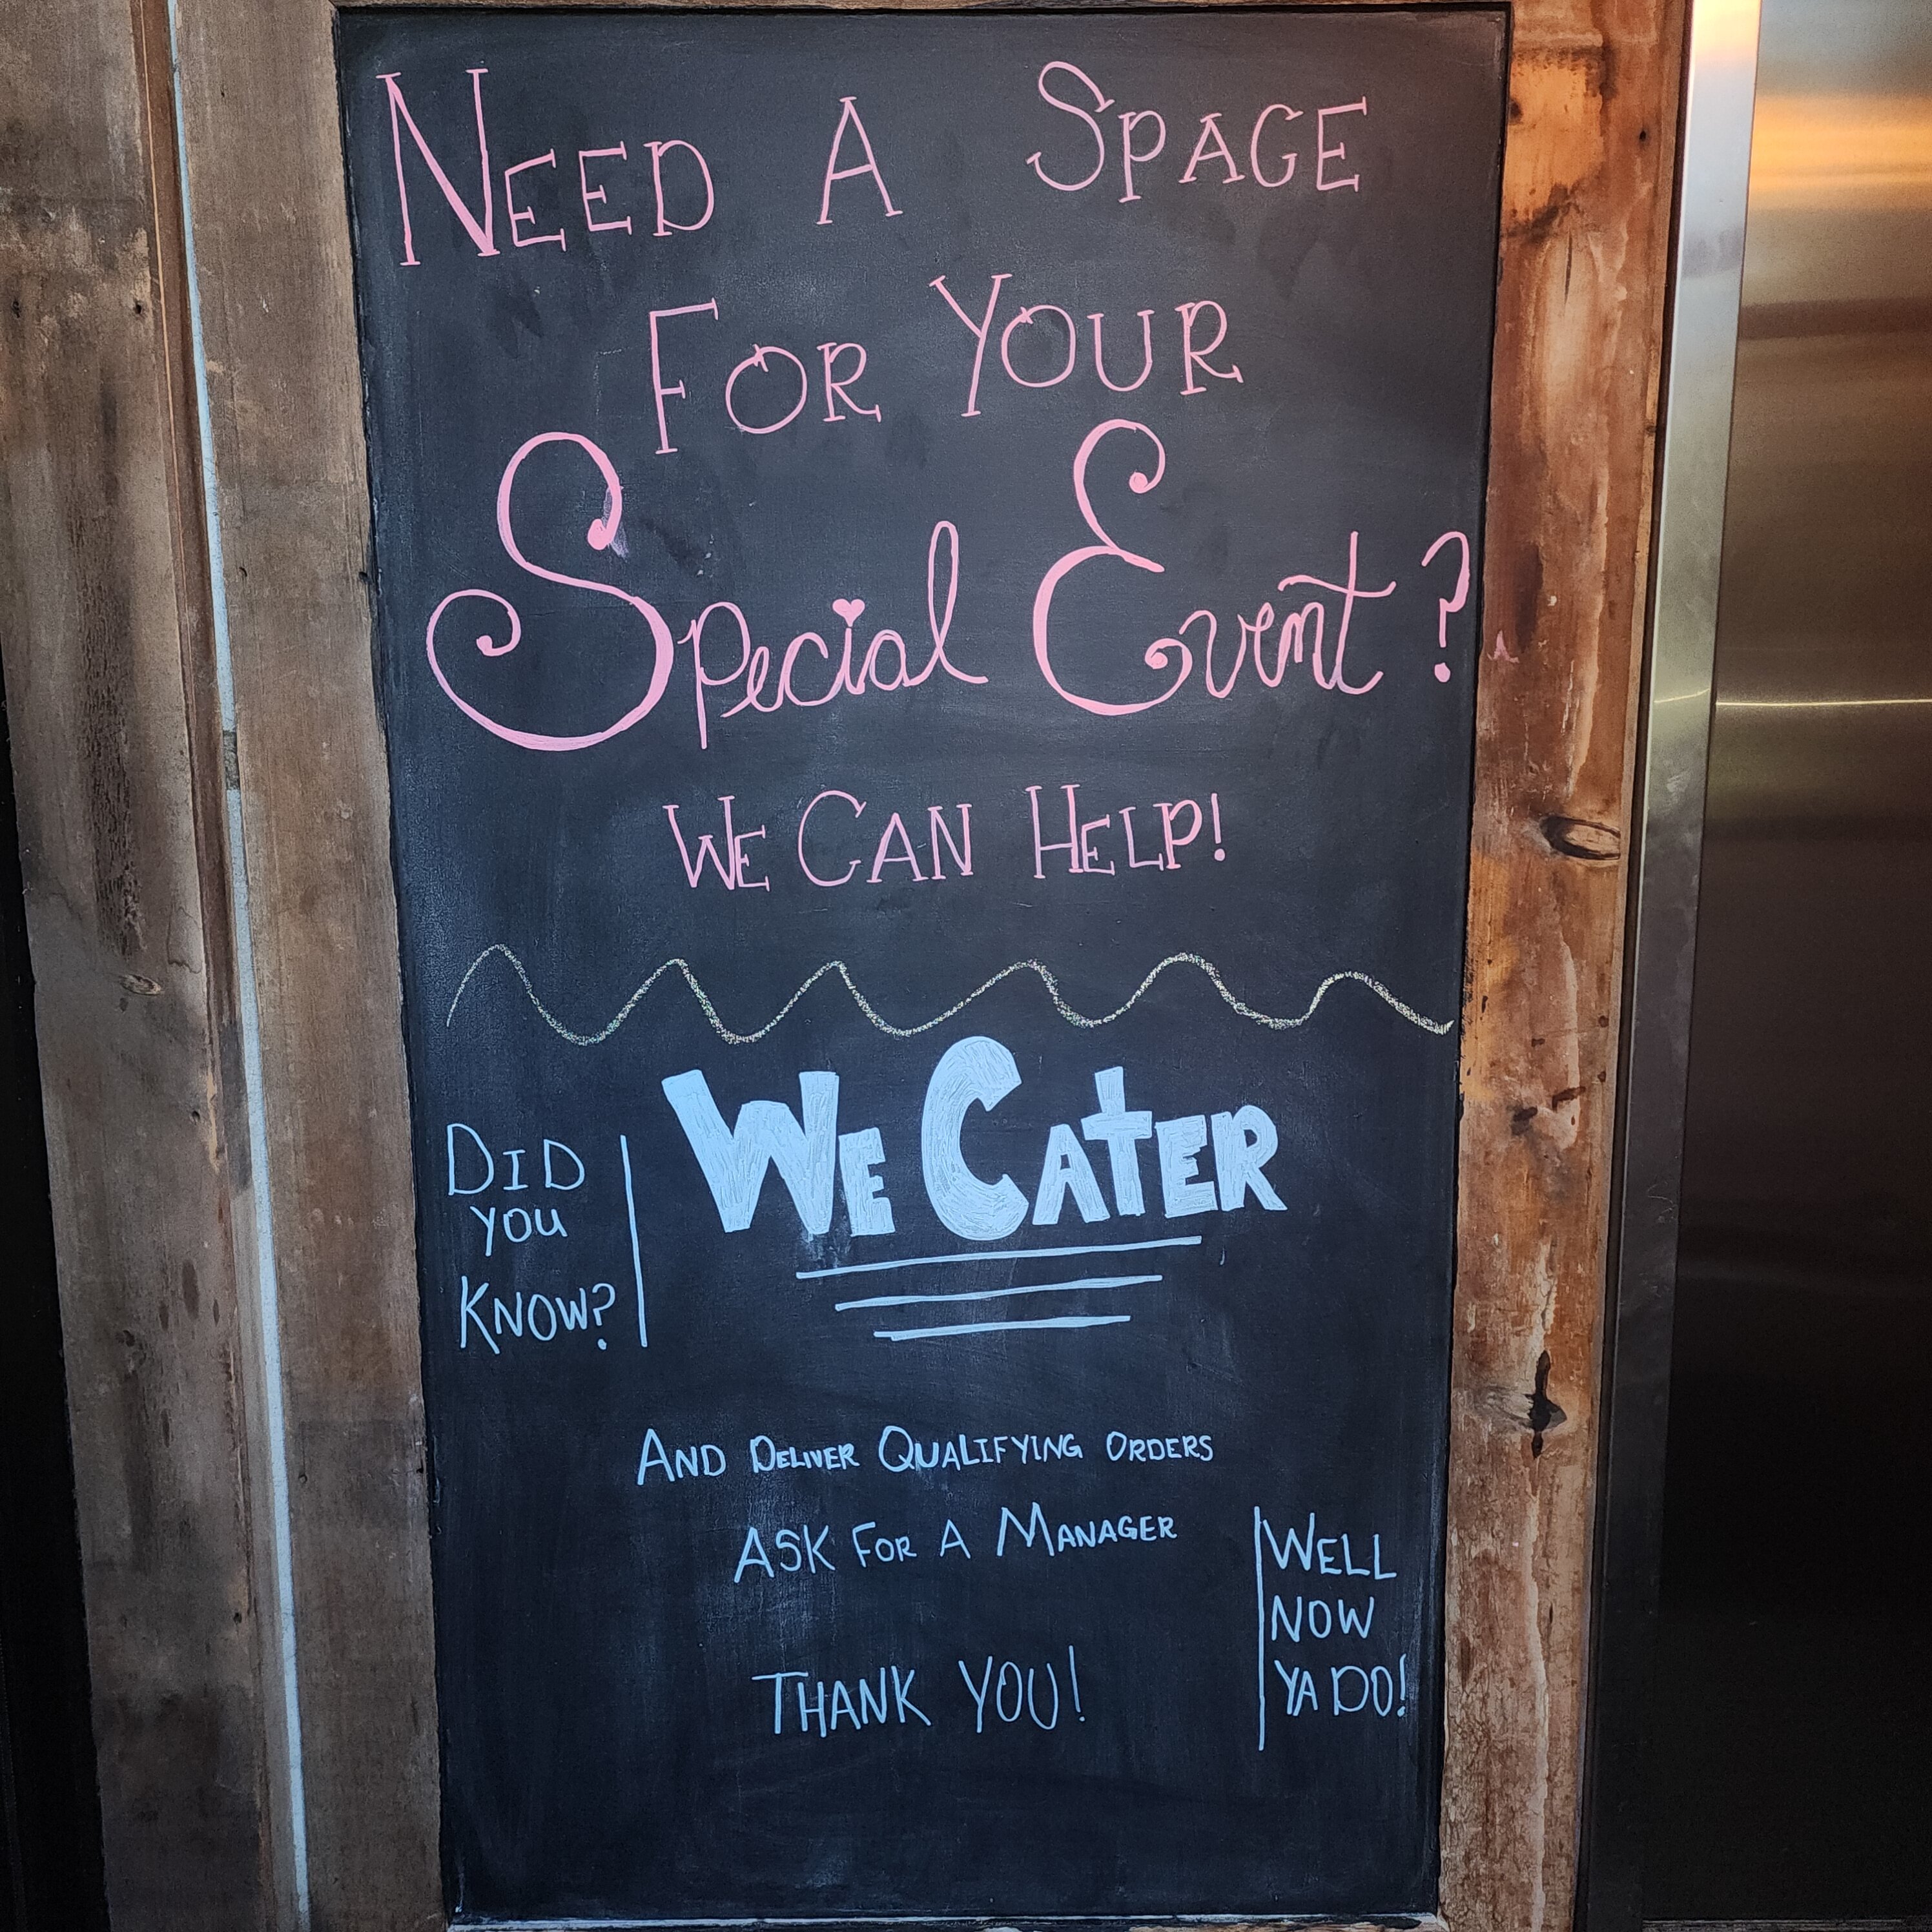 NEED A SPACE
FOR YOUR
Special Event?
WE CAN HELP!
DID
YOU
KNOW?
WE CATER
AND DELIVER QUALIFYING ORDERS
ASK FOR A MANAGER
THANK YOU!
WELL
NOW
YA DO!